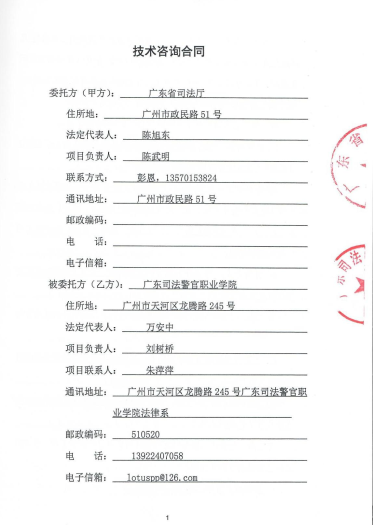 技术咨询合同
委托方（甲方）： 广东省司法厅
住所地： 广州市政民路 51 号
法定代表人： 陈旭东
项目负责人： 陈武明
联系方式： 彭恩，13570153824
通讯地址： 广州市政民路 51 号
邮政编码：
电 话：
电子信箱：
被委托方（乙方）： 广东司法警官职业学院
住所地： 广州市天河区龙腾路 245 号
法定代表人： 万安中
项目负责人： 刘树桥
项目联系人： 朱萍萍
通讯地址： 广州市天河区龙腾路 245 号广东司法警官职
业学院法律系
邮政编码： 510520
电 话： 13922407058
电子信箱： lotuspp@126.com
1
东省
司法